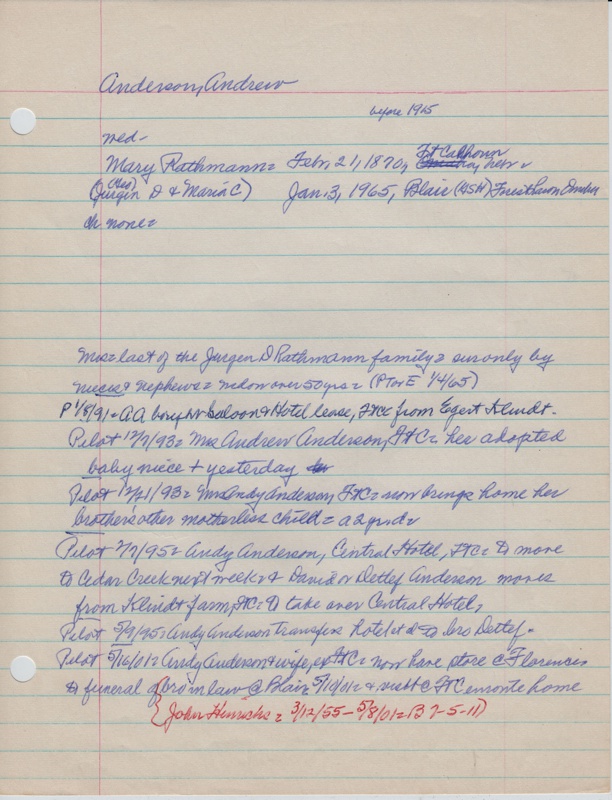 Anderson, Andrew
before 1965
med-
Ft Calhoun
Mary Rathmann = Febr, 21, 1870, nebr
(Jurgen D & Maria C) Jan. 3, 1965, Blair (HSW) Forest Lawn Omaha
ch none =
Mrs = last of the Jurgen D Rathmann family = sur only by
nieces & nephews = widow over 50 yrs = (P Tor E 1/4/65)
P 1/8/91 = AA buys Saloon & Hotel lease, FtC from Egert Klindt.
Pilot 12/7/93 = Mrs Andrew Anderson, FtC = her adopted
baby niece + yesterday
Pilot 12/21/93 = Mrs Andy Anderson, FtC = now brings home her
brother's other motherless child = a 2 yr old
Pilot 2/7/95 = Andy Anderson, Central Hotel, FtC = to move
to Cedar Creek next week & David or Detlef Anderson moves
from Klindt farm, FtC = to take over Central Hotel,
Pilot 5/9/95 = Andy Anderson transfers hotel to bro Detlef.
Pilot 5/16/01 = Andy Anderson & wife, ex FtC = now have store @ Florence =
to funeral of bro in law @ Blair 5/10/01 = & visit @ FtC enroute home
(John Hinrichs = 3/12/55 - 5/8/01 = B 7-5-11)